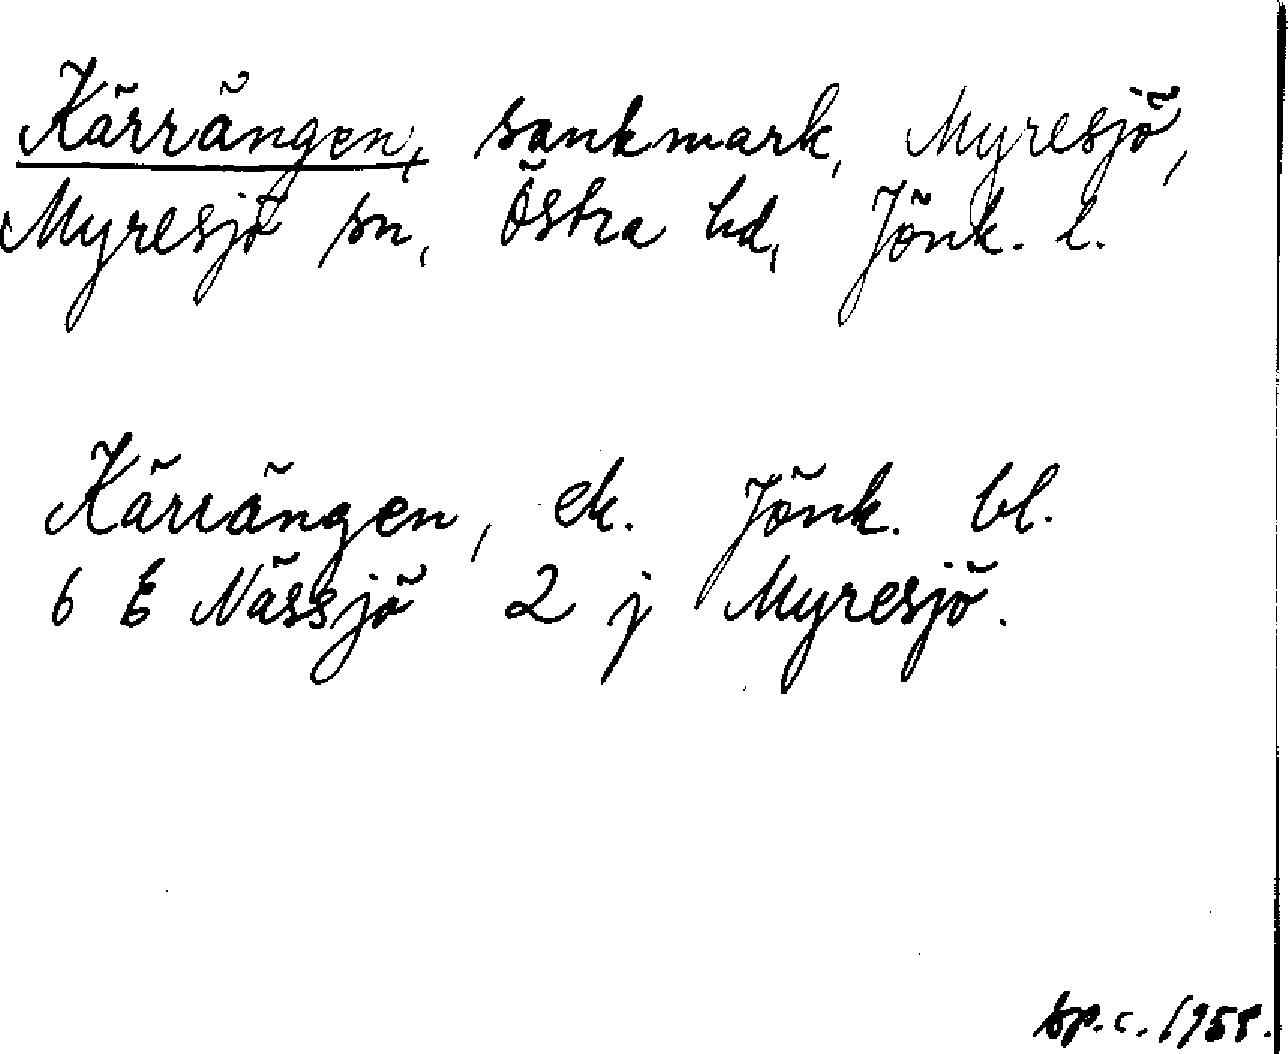 Kärrängen, sankmark, Myresjö,
Myresjö sn, Östra hd, Jönk. l.
Kärrängen, ek. Jönk. bl.
6 E Nässjö 2 j Myresjö.